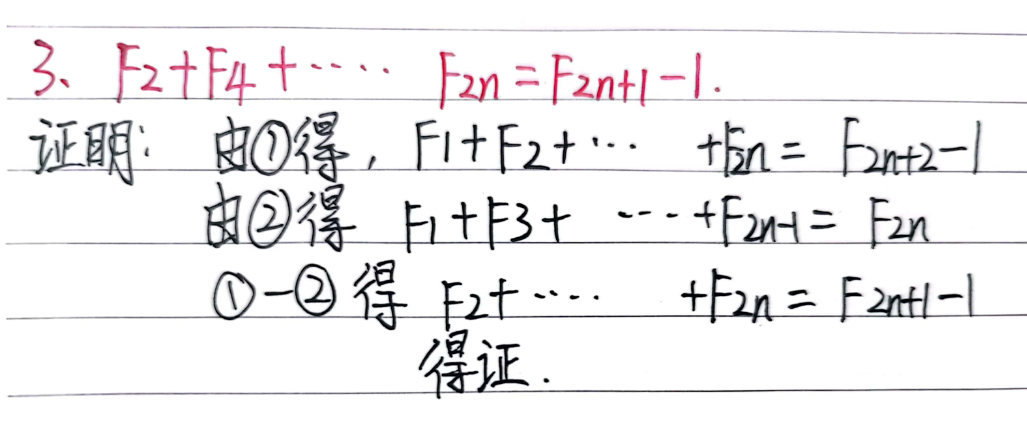 3、F2+F4+····· F2n=F2n+1-1.
证明: 由①得, F1+F2+··· +F2n= F2n+2-1
由②得 F1+F3+ ····+F2n-1= F2n
①-②得 F2+···· +F2n= F2n+1-1
得证.